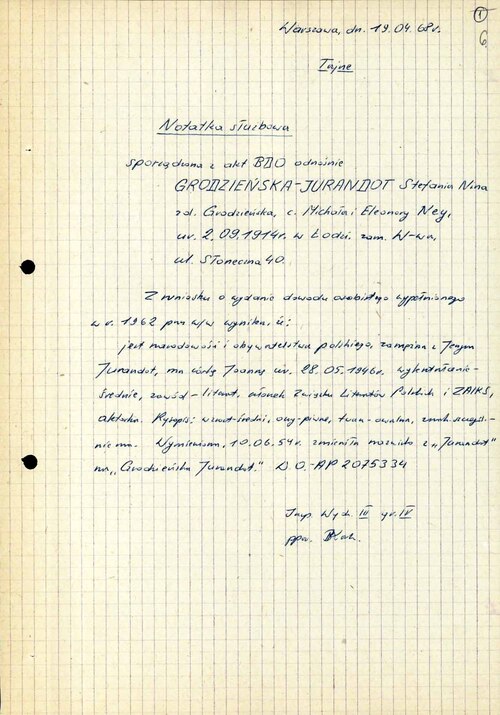 1
6
Warszawa, dn. 19.04.68r.
Tajne
Notatka służbowa
sporządzona z akt BDO odnośnie
GRODZIEŃSKA-JURANDOT Stefania Nina
zd. Grodzieńska, c. Michała i Eleonory Ney,
ur. 2.09.1914r. w Łodzi zam. W-wa,
ul. Słoneczna 40.
Z wniosku o wydanie dowodu osobistego wypełnionego
w r. 1962 przez w/w wynika, iż:
jest narodowości i obywatelstwa polskiego, zamężna z Jerzym
Jurandot, ma córkę Joannę ur. 28.05.1946r. wykształcenie-
średnie, zawód-literat, członek Związku Literatów Polskich i ZAIKS,
aktorka. Rysopis: wzrost-średni, oczy-piwne, twarz-owalna, znak szczegól.-
nie ma. Wymieniona, 10.06.54r. zmieniła nazwisko z „Jurandot"
na „Grodzieńska Jurandot". D.O.-AP 2075334
Insp. Wydz. III gr. IV
ppor.